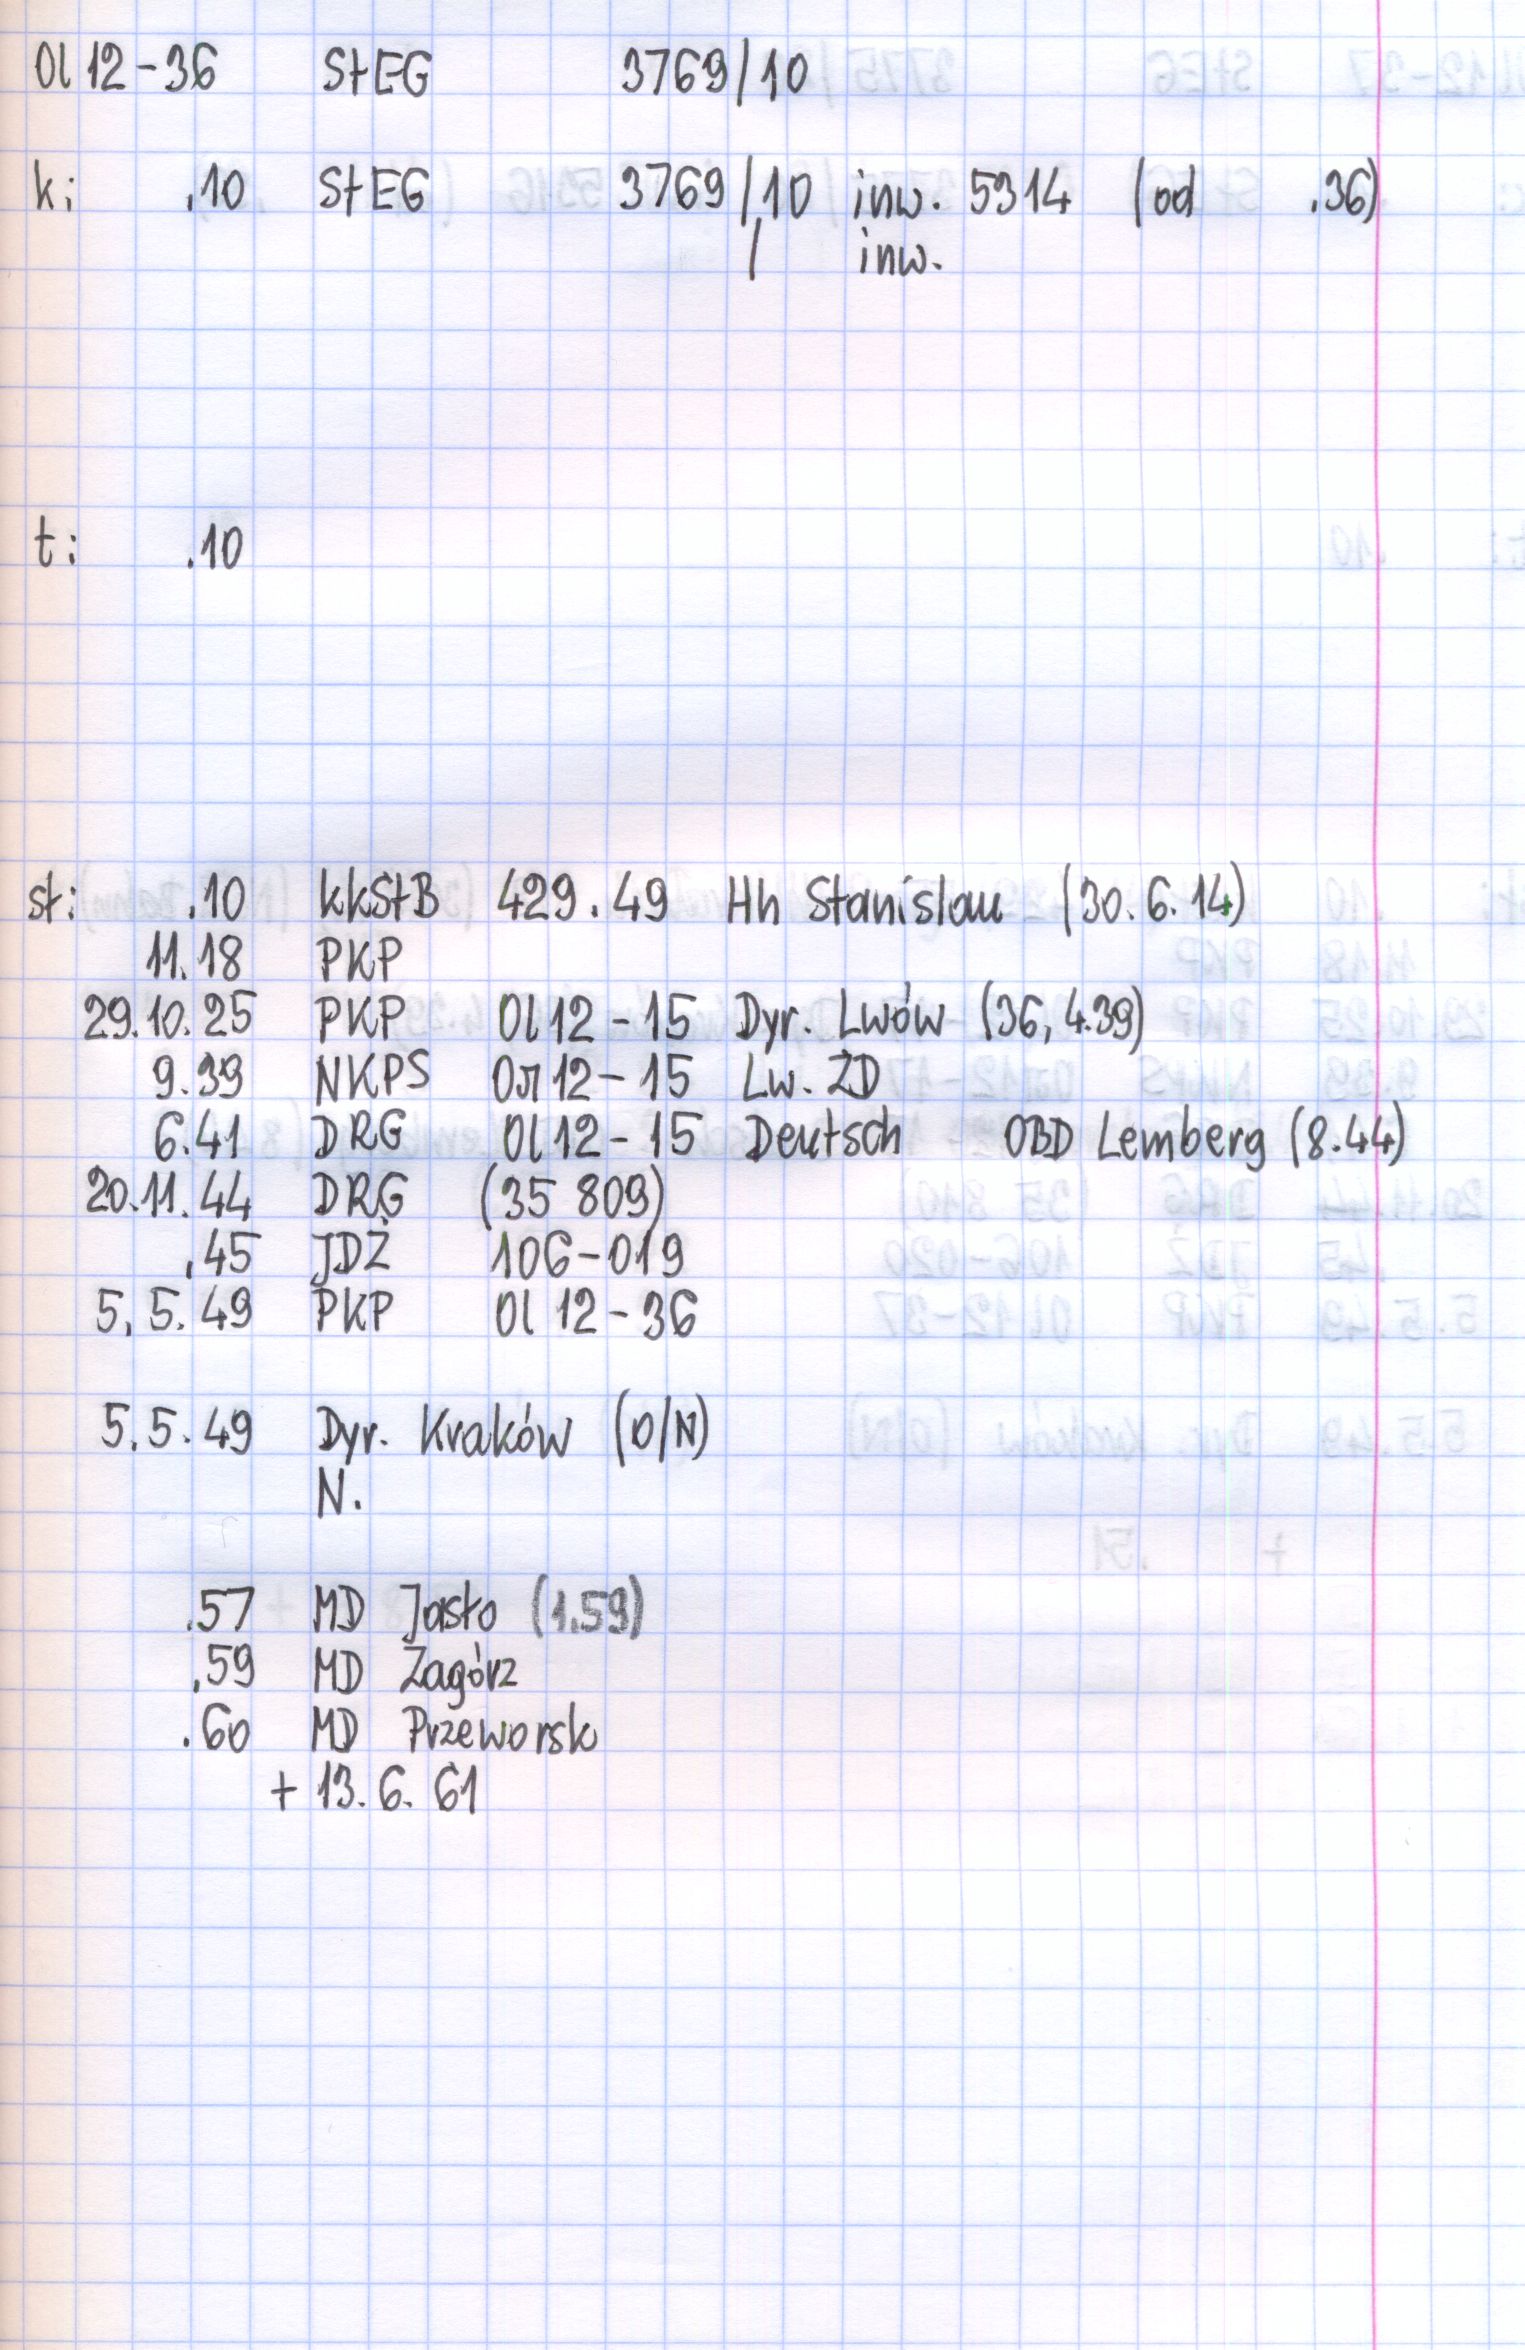 Ol 12-36 StEG 3769/10
k: .10 StEG 3769/10 inw. 5314 (od .36)
/ inw.
t: .10
st: .10 kkStB 429.49 Hh Stanislau (30.6.14)
11.18 PKP
29.10.25 PKP Ol 12-15 Dyr. Lwów (36, 4.39)
9.39 NKPS Ол 12-15 Lw. ŻD
6.41 DRG Ol 12-15 Deutsch OBD Lemberg (8.44)
20.11.44 DRG (35 809)
.45 JDŻ 106-019
5.5.49 PKP Ol 12-36
5.5.49 Dyr. Kraków (O/N)
N.
.57 MD Jasło (1.59)
.59 MD Zagórz
.60 MD Przeworsk
+ 13.6.61